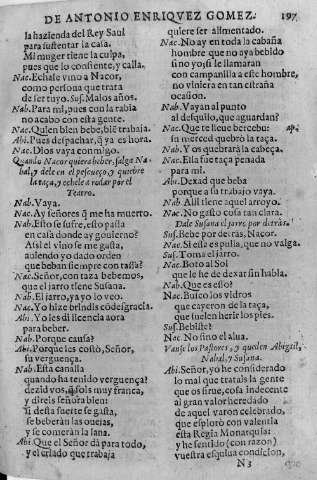 DE ANTONIO ENRIQVEZ GOMEZ. 197
la hazienda del Rey Saul
para sustentar la casa.
Mi muger tiene la culpa,
pues que lo consiente, y calla.
Nac. Echale vino a Nacor,
como persona que trata
de ser tuyo. Sus. Malos años.
Nab. Para mi, pues con la rabia
no acabo con esta gente.
Nac. Quien bien bebe, biē trabaja.
Abi. Pues despachar, q̃ ya es hora.
Nac. Dios vaya conmigo.
Quando Nacor quiera beber, salga Na-
bal, y dele en el pescueço, y quiebre
la taça, y echele a rodar por el
Teatro.
Nab. Vaya.
Nac. Ay señores q̃ me ha muerto.
Nab. Esto se sufre, esto passa
en casa donde ay gouierno?
Assi el vino se me gasta,
auiendo yo dado orden
que beban siempre con tassa?
Nac. Señor, con taza bebemos,
que el jarro tiene Susana.
Nab. El jarro, ya yo lo veo.
Nac. Yo hize brindis cō desgracia.
Abi. Yo les di licencia aora
para beber.
Nab. Porque causa?
Abi. Porque les costò, Señor,
su verguença.
Nab. Esta canalla
quando ha tenido verguença?
dezid vos, q̃ sois muy franca,
y direis señora bien:
si desta suerte se gasta,
se beberàn las ouejas,
y se comeràn la lana.
Abi. Que el Señor dà para todo,
y el criado que trabaja
quiere ser alimentado.
Nac. No ay en toda la cabaña
hombre que no aya bebido
sino yo; si le llamaran
con campanilla a este hombre,
no viniera en tan estraña
ocasion.
Nab. Vayan al punto
al desquilo, que aguardan?
Nac. Que te lleue bercebu:
su merced quebrò la taça.
Nab. Y os quebrarà la cabeça.
Nac. Ella fue taça penada
para mi.
Abi. Dexad que beba
porque a su trabajo vaya.
Nab. Alli tiene aquel arroyo.
Nac. No gasto cosa tan clara.
Dale Susana el jarro por detràs.
Sus. Bebe por detràs, Nacor.
Nac. Si està es pulla, que no valga.
Sus. Toma el jarro.
Nac. Boto al Sol
que le he de dexar sin habla.
Nab. Que es esso?
Nac. Busco los vidros
que cayeron de la taça,
que suelen herir los pies.
Sus. Bebiste?
Nac. No sino el alua.
Vanse los Pastores, y queden Abigail,
Nabal, y Susana.
Abi. Señor, yo he considerado
lo mal que tratais la gente
que os sirue, cosa indecente
al gran valor heredado
de aquel varon celebrado,
que esplorò con valentia
esta Regia Monarquia:
y he sentido (con razon)
vuestra esquiua condicion,
N 3